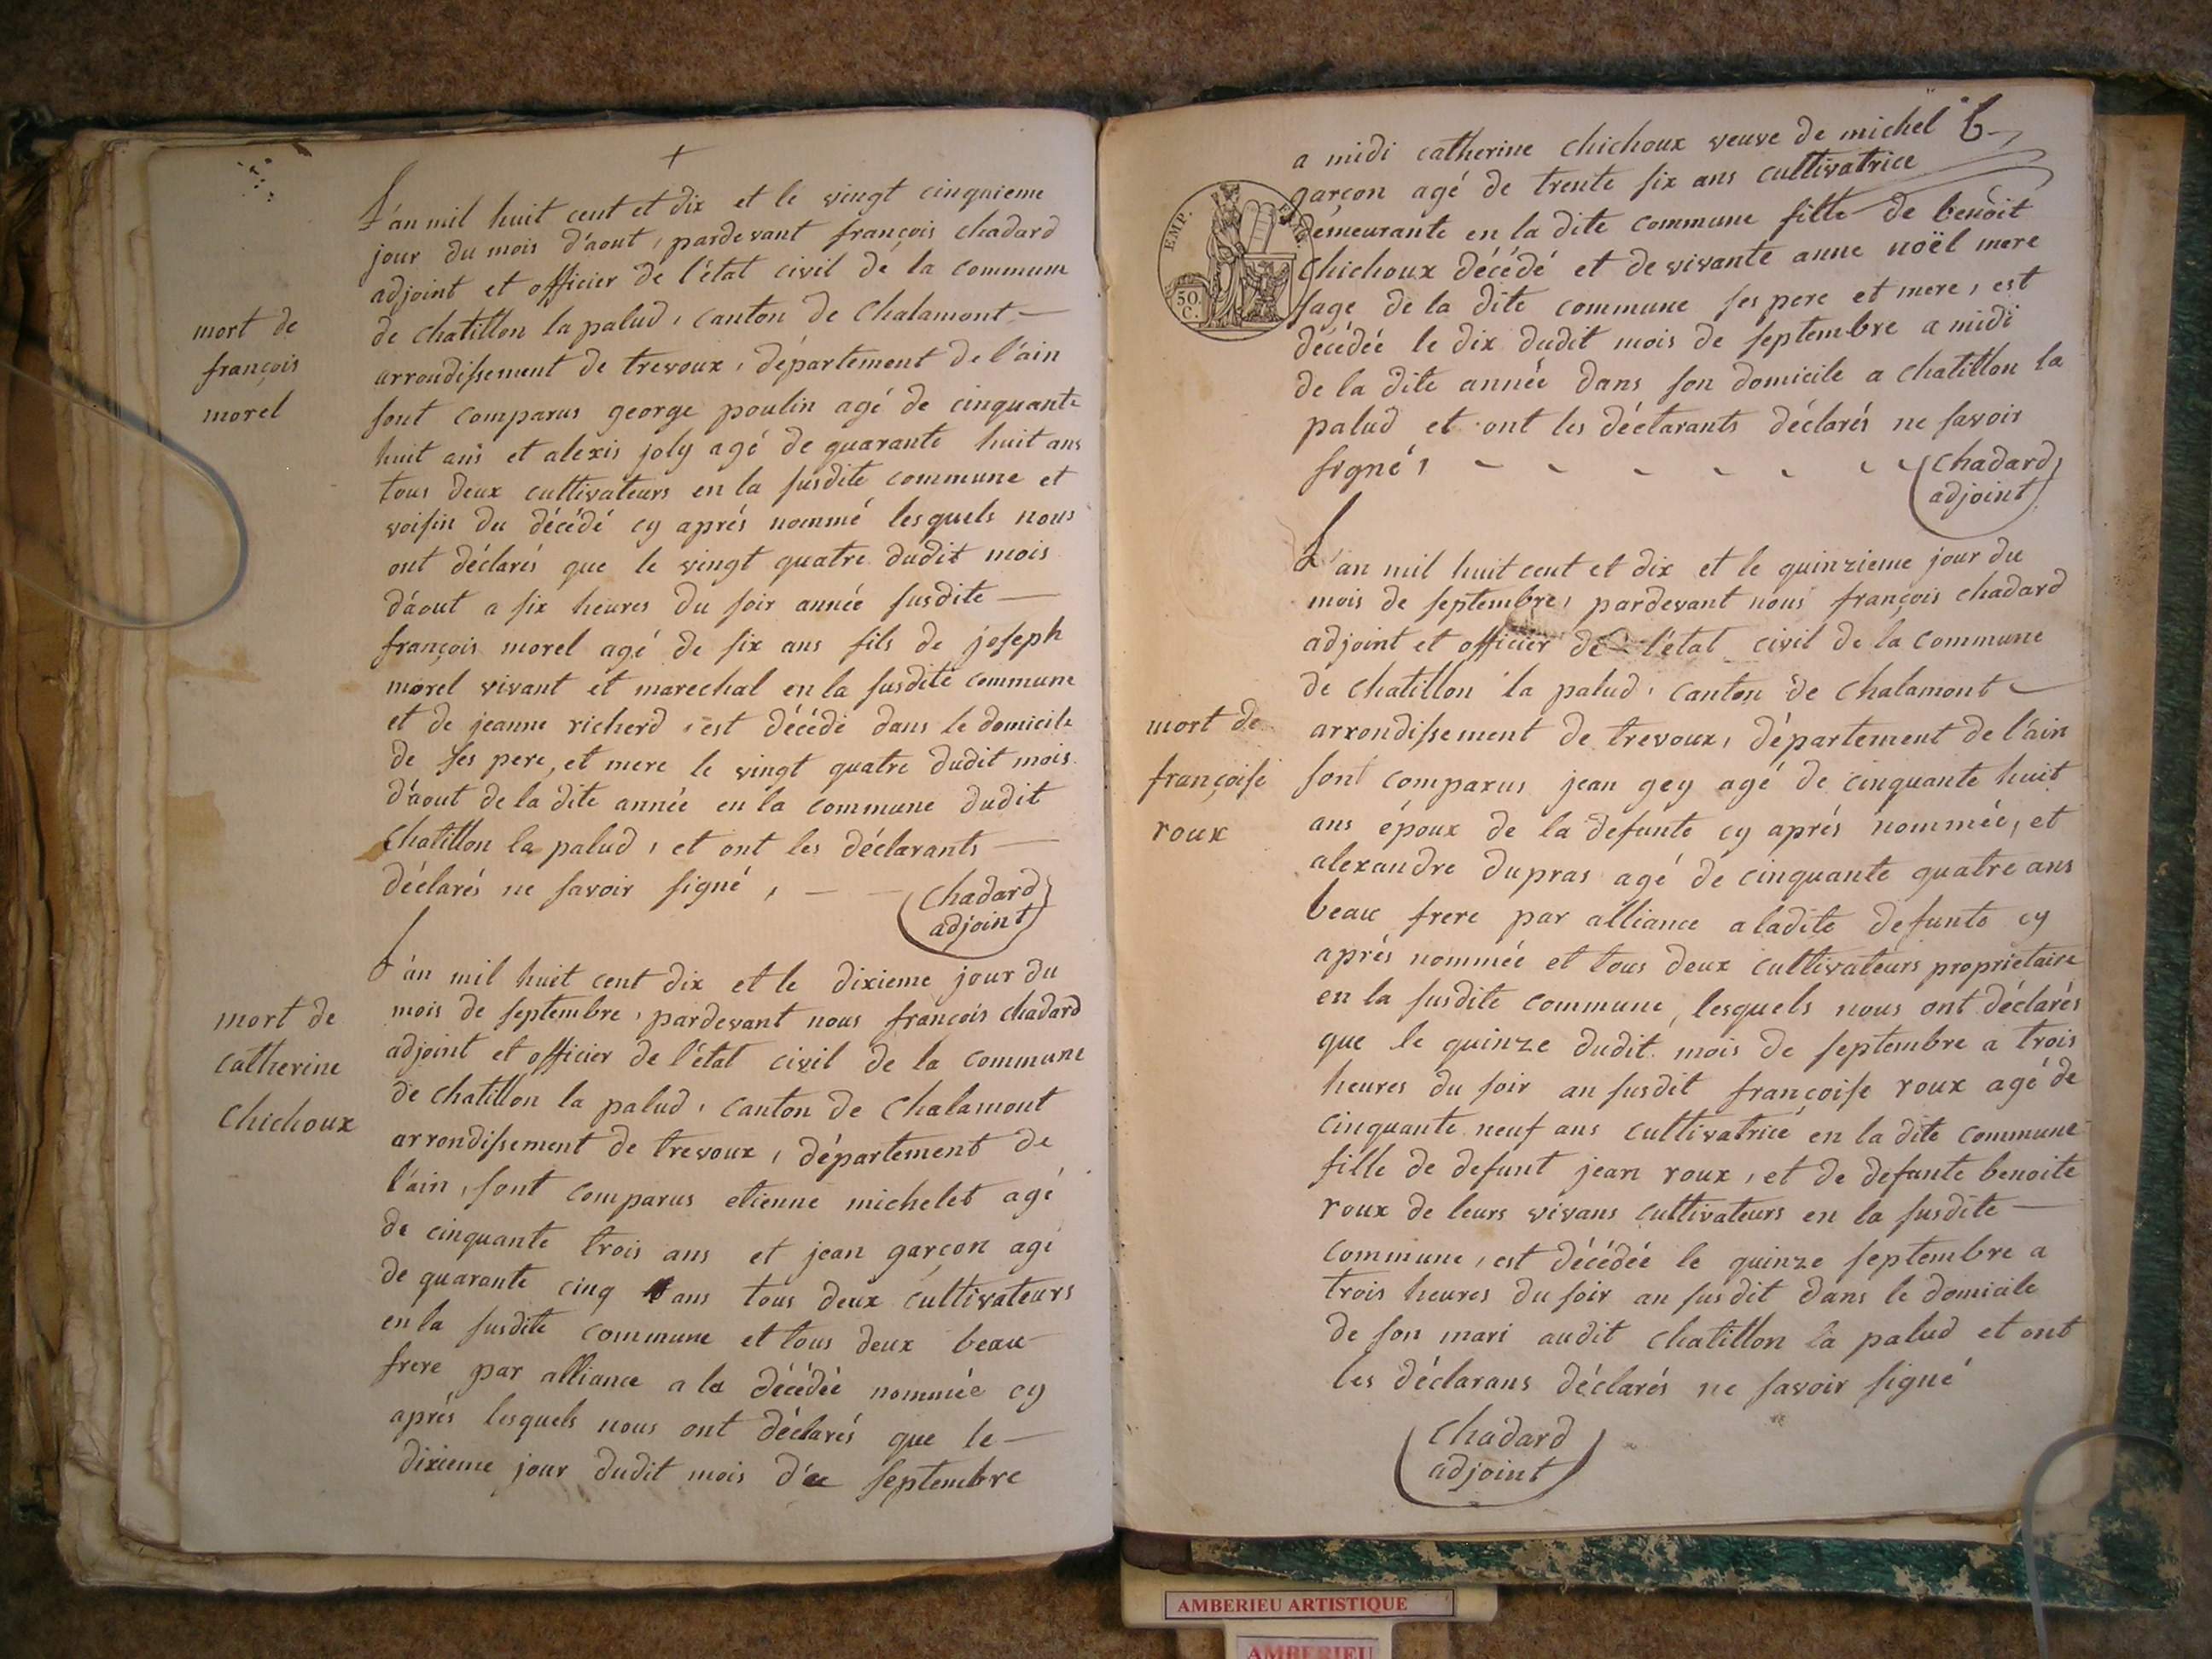 +
L'an mil huit cent et dix et le vingt cinquieme
jour du mois d'aout, pardevant françois chadard
adjoint et officier de l'état civil de la commune
de chatillon la palud, canton de Chalamont —
arrondissement de trevoux, département de l'ain
sont comparus george poulin agé de cinquante
huit ans et alexis joly agé de quarante huit ans
tous deux cultivateurs en la susdite commune et
voisin du décédé cy aprés nommé lesquels nous
ont déclarés que le vingt quatre dudit mois
d'aout a six heures du soir année susdite —
françois morel agé de six ans fils de joseph
morel vivant et marechal en la susdite commune
et de jeanne richerd, est décédé dans le domicile
de ses pere, et mere le vingt quatre dudit mois
d'aout de la dite année en la commune dudit
Chatillon la palud, et ont les déclarants —
déclarés ne savoir signé, — —
Chadard
adjoint
mort de
françois
morel
L'an mil huit cent dix et le dixieme jour du
mois de septembre, pardevant nous françois chadard
adjoint et officier de l'état civil de la commune
de chatillon la palud, canton de Chalamont
arrondissement de trevoux, département de
l'ain, sont comparus etienne michelet agé
de cinquante trois ans et jean garçon agé
de quarante cinq ans tous deux cultivateurs
en la susdite commune et tous deux beau
frere par alliance a la décédée nommée cy
aprés lesquels nous ont déclarés que le —
dixieme jour dudit mois de septembre
mort de
catherine
Chichoux
a midi catherine chichoux veuve de michel
garçon agé de trente six ans cultivatrice
demeurante en la dite commune fille de benoit
Chichoux décédé et de vivante anne noël mere
sage de la dite commune ses pere et mere, est
décédée le dix dudit mois de septembre a midi
de la dite année dans son domicile a chatillon la
palud et ont les déclarants déclarés ne savoir
signé,
Chadard
adjoint
EMP. FRAN.
50
C.
L'an mil huit cent et dix et le quinzieme jour du
mois de septembre, pardevant nous françois chadard
adjoint et officier de l'état civil de la commune
de chatillon la palud, canton de chalamont —
arrondissement de trevoux, département de l'ain
sont comparus jean gey agé de cinquante huit
ans époux de la defunte cy aprés nommée, et
alexandre dupras agé de cinquante quatre ans
beau frere par alliance a ladite defunte cy
aprés nommée et tous deux cultivateurs proprietaire
en la susdite commune, lesquels nous ont déclarés
que le quinze dudit mois de septembre a trois
heures du soir an susdit françoise roux agé de
cinquante neuf ans cultivatrice en la dite commune
fille de defunt jean roux, et de defunte benoite
roux de leurs vivans cultivateurs en la susdite —
commune, est décédée le quinze septembre a
trois heures du soir an susdit dans le domicile
de son mari audit chatillon la palud et ont
les déclarans déclarés ne savoir signé
Chadard
adjoint
mort de
françoise
roux
AMBERIEU ARTISTIQUE
AMBERIEU